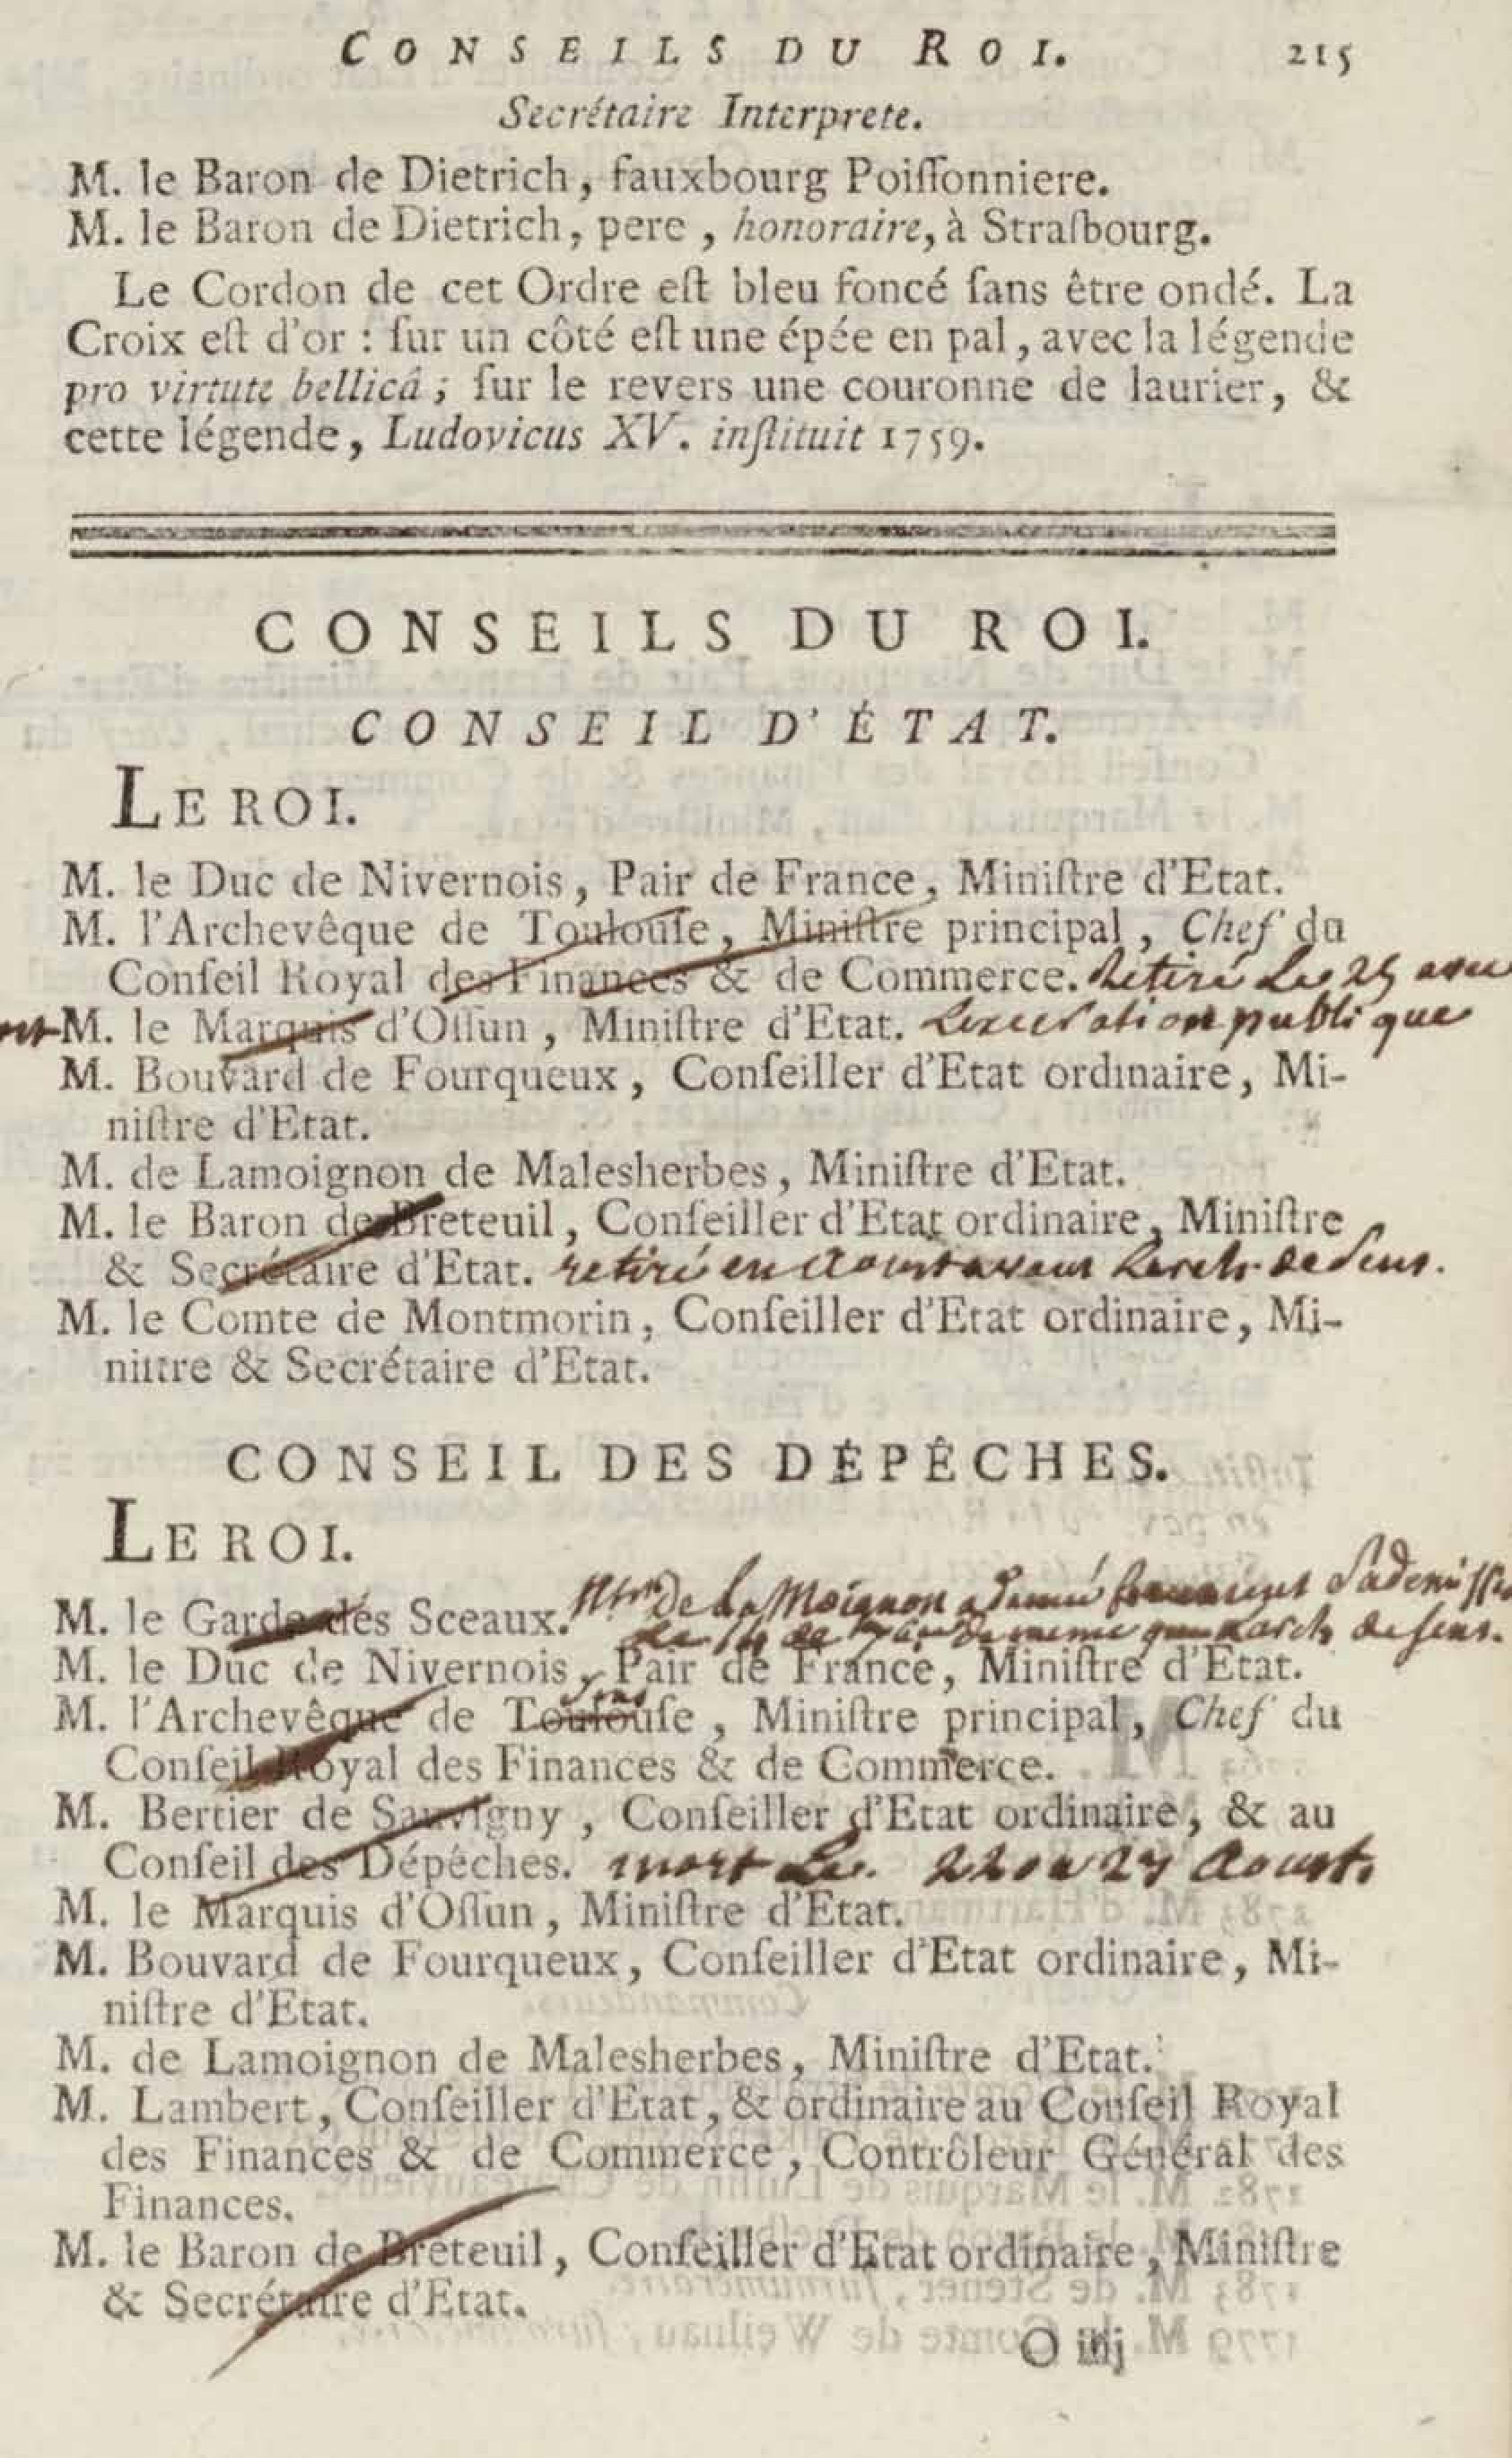 CONSEILS DU ROI. 215
Secrétaire Interprete.
M. le Baron de Dietrich, fauxbourg Poiſſonniere.
M. le Baron de Dietrich, pere, honoraire, à Straſbourg.
Le Cordon de cet Ordre eſt bleu foncé ſans être ondé. La
Croix eſt d'or : ſur un côté eſt une épée en pal, avec la légende
pro virtute bellicâ ; ſur le revers une couronne de laurier, &
cette légende, Ludovicus XV. inſtituit 1759.
CONSEILS DU ROI.
CONSEIL D'ÉTAT.
LE ROI.
M. le Duc de Nivernois, Pair de France, Miniſtre d'Etat.
M. l'Archevêque de Toulouſe, Miniſtre principal, Chef du
Conſeil Royal des Finances & de Commerce. Retiré Le 25 avec
M. le Marquis d'Oſſun, Miniſtre d'Etat. Lexecration publique
M. Bouvard de Fourqueux, Conſeiller d'Etat ordinaire, Mi-
niſtre d'Etat.
M. de Lamoignon de Malesherbes, Miniſtre d'Etat.
M. le Baron de Breteuil, Conſeiller d'Etat ordinaire, Miniſtre
& Secrétaire d'Etat. retiré en Aoust Larch. de Sens.
M. le Comte de Montmorin, Conſeiller d'Etat ordinaire, Mi-
niſtre & Secrétaire d'Etat.
CONSEIL DES DÉPÊCHES.
LE ROI.
M. le Garde des Sceaux. De La Moignon a donné Sa demission
de meme que Larch de sens.
M. le Duc de Nivernois, Pair de France, Miniſtre d'Etat.
Sens
M. l'Archevêque de Toulouſe, Miniſtre principal, Chef du
Conſeil Royal des Finances & de Commerce.
M. Bertier de Sauvigny, Conſeiller d'Etat ordinaire, & au
Conſeil des Dépêches. mort Le. 22 ou 23 Aoust
M. le Marquis d'Oſſun, Miniſtre d'Etat.
M. Bouvard de Fourqueux, Conſeiller d'Etat ordinaire, Mi-
niſtre d'Etat.
M. de Lamoignon de Malesherbes, Miniſtre d'Etat.
M. Lambert, Conſeiller d'Etat, & ordinaire au Conſeil Royal
des Finances & de Commerce, Contrôleur Général des
Finances.
M. le Baron de Breteuil, Conſeiller d'Etat ordinaire, Miniſtre
& Secrétaire d'Etat.
O iij